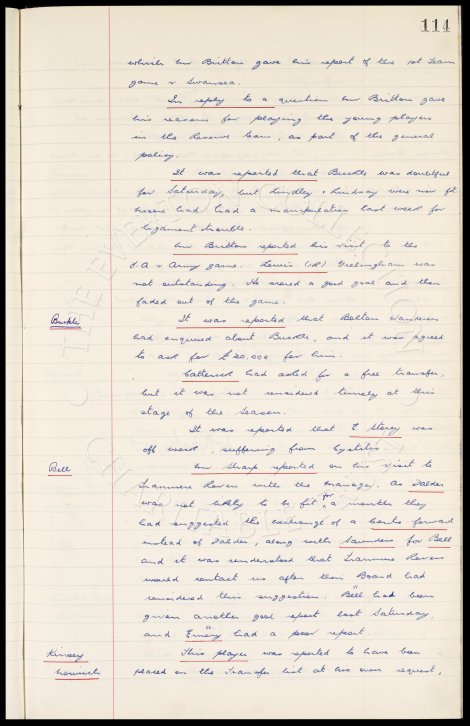 114
which Mr Britton gave his report of the 1st Team
game v Swansea.
In reply to a question Mr Britton gave
his reasons for playing the young players
in the Reserve team, as part of the general
policy.
It was reported that Buckle was doubtful
for Saturday, but Lindley & Lindsay were now fit
had had a manipulation last week for
ligament trouble.
Mr Britton reported his visit to the
F.A v Army game. Lewis (I.R) Gillingham was
not outstanding. He scored a good goal and then
faded out of the game.
Buckle
It was reported that Bolton Wanderers
had enquired about Buckle, and it was agreed
to ask for £20,000 for him.
Catterick had asked for a free transfer,
but it was not considered timely at this
stage of the season.
It was reported that E. Storey was
off work, suffering from Cystitis.
Bell
Mr Sharp reported on his visit to
Tranmere Rovers with the Manager. As Falder
was not likely to be fit for a month they
had suggested the exchange of a Centre forward
instead of Falder, along with Saunders for Bell
and it was understood that Tranmere Rovers
would contact us after their Board had
considered this suggestion. Bell had been
given another good report last Saturday,
and Emery had a poor report.
Kinsey
Norwich
This player was reported to have been
placed on the Transfer list at his own request,
THE EVERTON COLLECTION
CHARITABLE TRUST